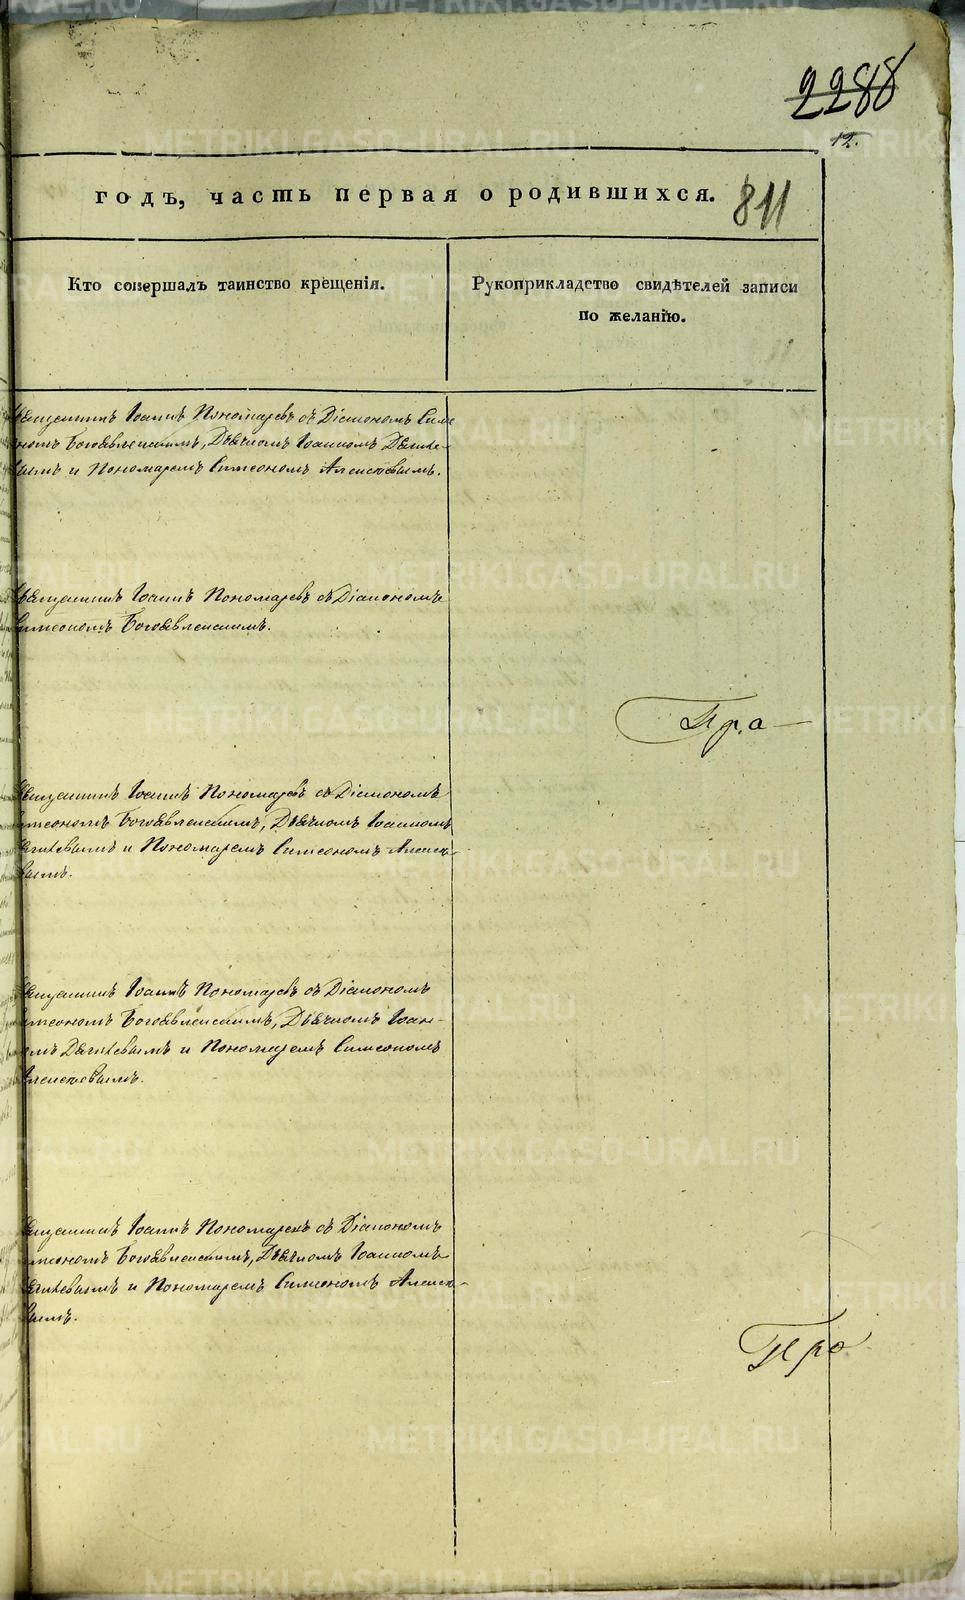 2288
12.
годъ, часть первая о родившихся.
811
Кто совершалъ таинство крещенія.
Рукоприкладство свидѣтелей записи
по желанію.
Священникъ Іоаннъ Пономаревъ съ Діакономъ Симе
ономъ Богоявленскимъ, Дьячкомъ Іоанномъ
и Пономаремъ Симеономъ Алексѣевымъ.
Священникъ Іоаннъ Пономаревъ съ Діакономъ
Симеономъ Богоявленскимъ.
Пра
Священникъ Іоаннъ Пономаревъ съ Діакономъ
Симеономъ Богоявленскимъ, Дьячкомъ Іоанномъ
и Пономаремъ Симеономъ Алексѣ-
вымъ.
Священникъ Іоаннъ Пономаревъ съ Діакономъ
Симеономъ Богоявленскимъ, Дьячкомъ Іоан-
номъ и Пономаремъ Симеономъ
Алексѣевымъ.
Священникъ Іоаннъ Пономаревъ съ Діакономъ
Симеономъ Богоявленскимъ, Дьячкомъ Іоанномъ
и Пономаремъ Симеономъ Алексѣ-
вымъ.
Про
METRIKI.GASO-URAL.RU